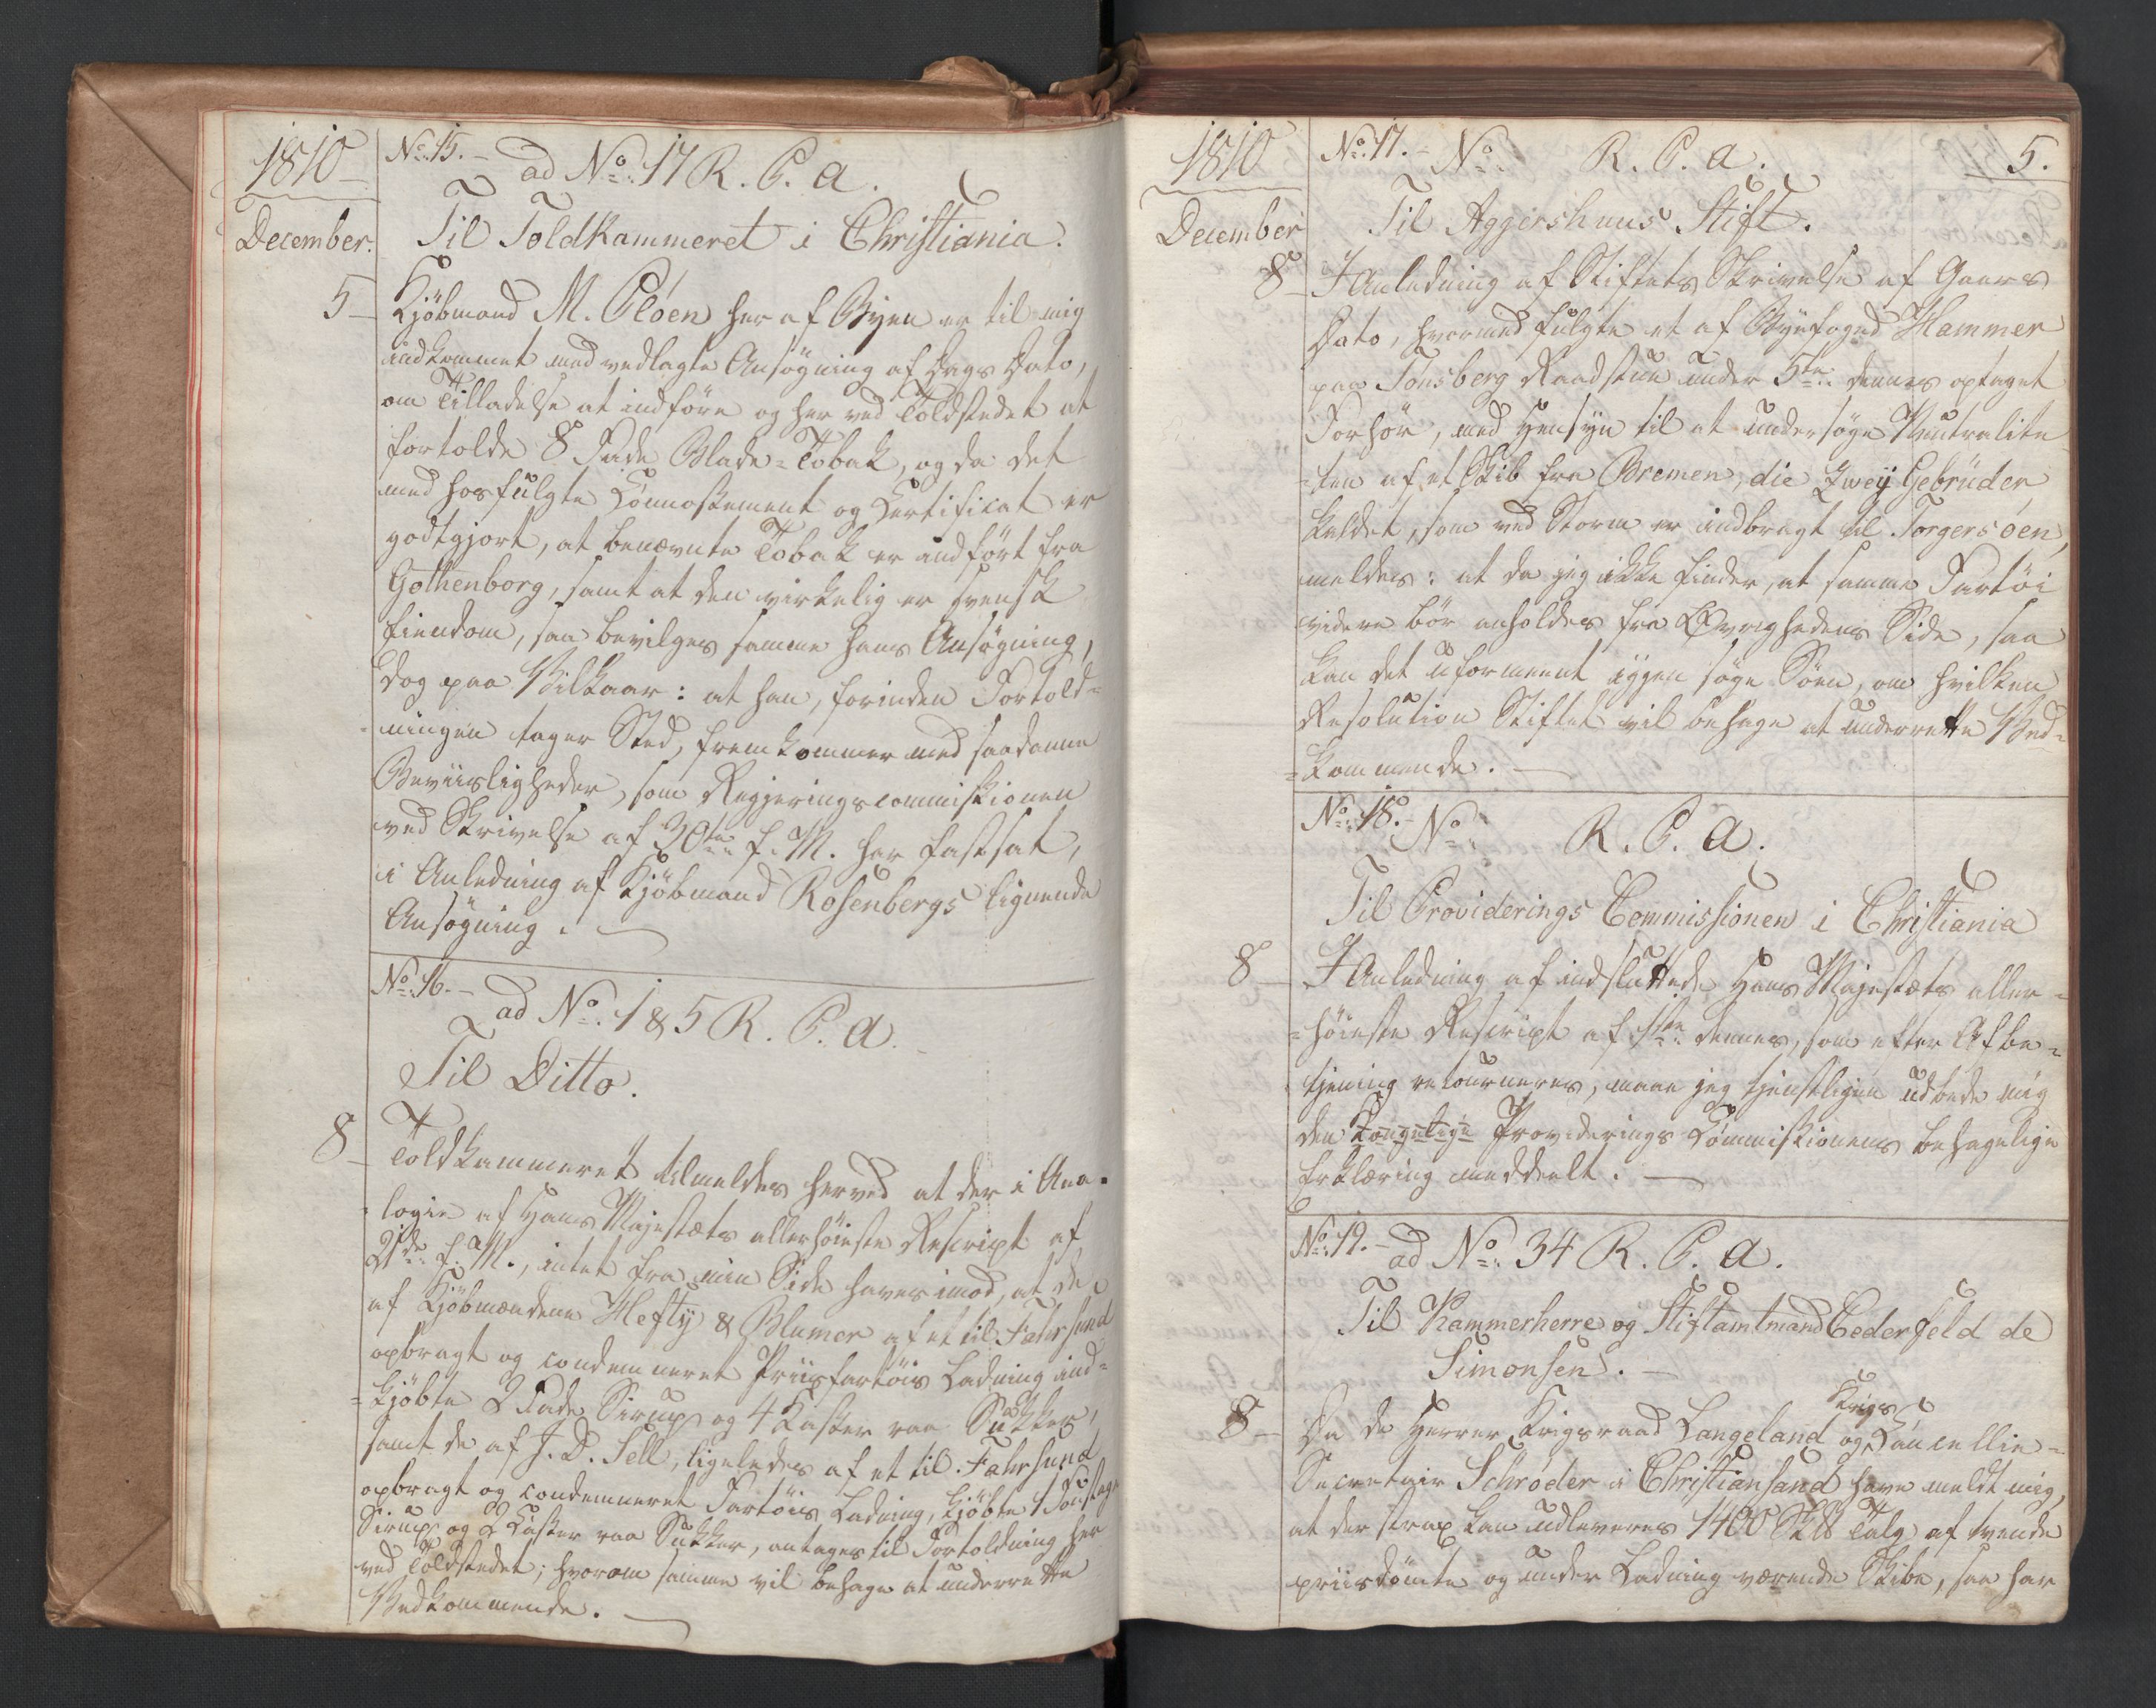 1810
No. 15. - ad No. 17 R. P. A.
December.
Til Toldkammeret i Christiania.
5 - Kjöbmand M. Plöen her af Byen er til mig
indkommet med vedlagte Ansøgning af Dags Dato,
om Tilladelse at indføre og her ved Toldstedet at
fortolde 8 Fade Blade-Tobak, og da det
med hosfulgte Connossement og Certificat er
godtgjort, at benævnte Tobak er indført fra
Gothenborg, samt at den virkelig er svensk
Eiendom, saa bevilges samme hans Ansøgning,
dog paa Vilkaar: at han, forinden Fortold-
ningen tager Sted, fremkommer med saadanne
Beviisligheder, som Regjeringscommissionen
ved Skrivelse af 30te f. M. har fastsat,
i Anledning af Kjöbmand Rosenbergs lignende
Ansøgning.
No. 16. - ad No. 1 & 5 R. P. A.
Til Ditto.
8 - Toldkammeret tilmeldes herved at der i Ana-
logie af Hans Majestæts allerhöieste Rescript af
21de f. M., intet fra min Side haves imod, at de
af Kjöbmændene Hefty & Blumer af et til Fahrsund
opbragt og condemneret Priisfartöis Ladning ind-
-kjöbte 2 Fade Sirup og 4 Kasker raa Sukker,
samt de af J. D. Sell, ligeledes af et til Fahrsund
opbragt og condemneret Fartöis Ladning, kjöbte 1
Sirup og 2 Kasker raa Sukker, antages til Fortoldning her
ved Toldstedet; hvorom samme vil behage at underrette
Vedkommende.
1810
No. 17. - No. R. P. A.
5.
December
Til Aggershuus Stift.
8 - I Anledning af Stiftets Skrivelse af Gaars
Dato, hvormed fulgte et af Byefoged Hammer
paa Tonsberg Raadstue under 5te dennes optaget
Forhör, med Hensyn til at undersöge Neutralite
-ten af et Skib fra Bremen, die Zweij Gebrüder
kaldet, som ved Storm er indbragt til Torgersöen,
meldes: at da jeg ikke finder, at samme Fartöi
videre bör anholdes fra Øvrighedens Side, saa
kan det uformeent igjen söge Söen, om hvilken
Resolution Stiftet vil behage at underrette Ved-
-kommende.
No. 18. - No. R. P. A.
Til Providerings Commissionen i Christiania
8 - I Anledning af indsluttede Hans Majestæts aller-
-höieste Rescript af 1ste dennes, som efter Afbe-
tjening retourneres, maae jeg tjenstligen udbede mig
den Kongelige Providerings Commissionens behagelige
Erklæring meddeelt.
No. 19. - ad No. 34 R. P. A.
Til Kammerherre og Stiftamtmand Cederfeld de
Simonsen.
8 - Da de Herrer Krigsraad Langeland og Krigs Cancellie-
Secretair Schröder i Christiansand have meldt mig,
at der strax kan udleveres 1400 Talg af tvende
priisdömte og under Ladning værende Skibe, saa har